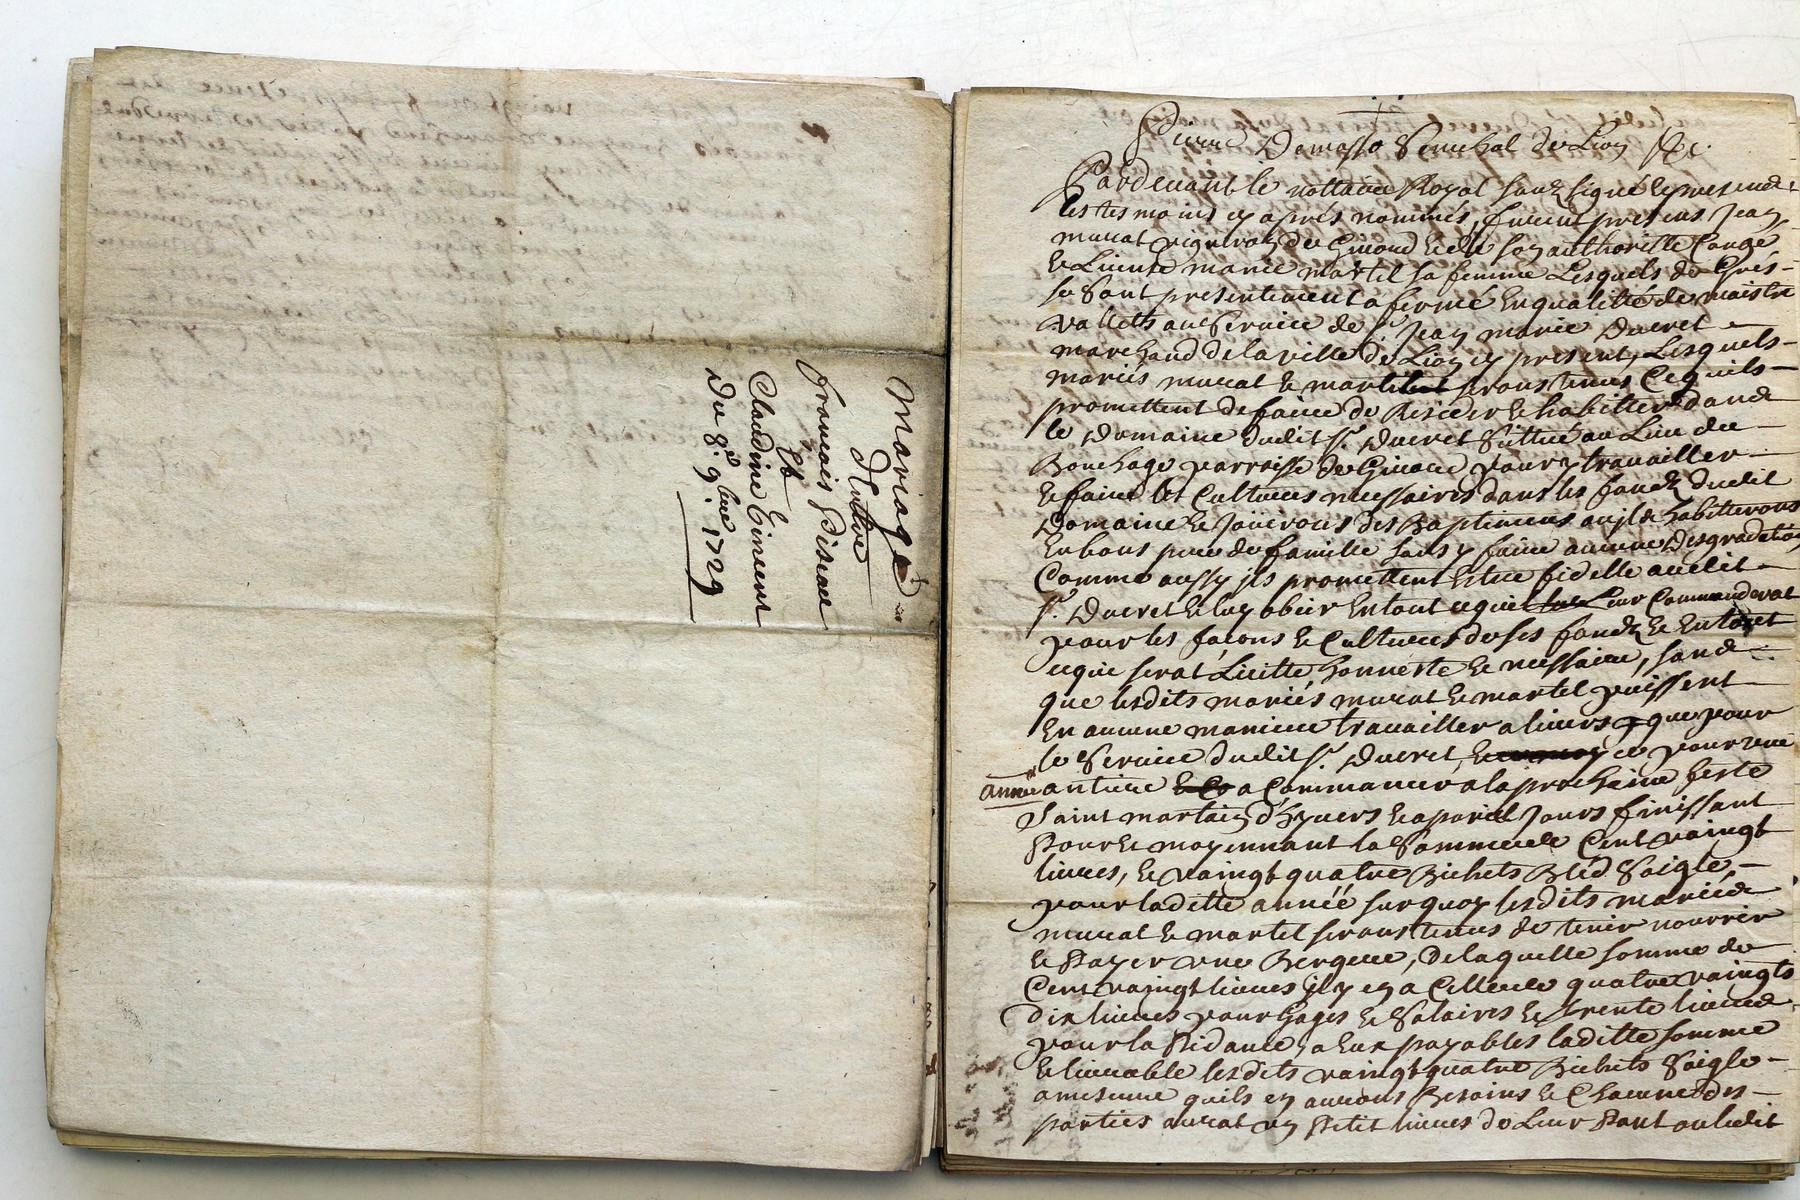 Mariage
d'Entre
François Pisseve
Et
Claudine Vincent
Du 8e 9bre 1729
Pierre Demasso Senechal de Lion &c.
Pardevant le nottaire Royal souz signé & presence
les tesmoins cy aprés nommés, furent presens Jean
murat vigneron de Givord & de son authorité Congé
& Licence marie martel sa femme Lesquels de Grés
se sont presentement afermé En qualitté de maistre
Vallets au Service de Sr Jean marie Ducret
marchand de la ville de Lion cy present, Lesquels
mariés murat & martel seront tenus Cequils
promettent de faire de Resider & habitter dans
le Domaine dudit Sr. Ducret Sittué au Lieu du
Bouchage parroisse de Givord pour y travailler
& faire les Cultures nessaires dans les fondz dudit
Domaine & Joüirons des Baptimens ou jls habitterons
En bons pere de famille sans y faire aucune Desgradation
Comme aussy jls promettent Estre fidelle audit
Sr. Ducret & luy obeir En tout ce qui Leur Commanderat
pour les façons & Cultures de ses fondz & En tout
ce qui serat Licitte honneste & nessaire, sans
que lesdits mariés murat & martel puissent
En aucune maniere travailler alieurs que pour
le Service dudit Sr. Ducret, ce pour une
année
antiere a Commancer a la prochaine feste
Saint martain d'hyvers & a pareil Jours finissant
Pour & moyennant la Somme de Cent vaingt
livres, & vaingt quatre Bichets Bléd Saigle
pour laditte année sur quoy lesdits mariés
murat & martel serons tenus de tenir nourrir
& Payer une Bergere, de laquelle somme de
Cent vaingt livres jl y en a Celle de quatre vaingts
dix livres pour Gages & Salaires & trente livres
pour la Pidance, a Eux payables laditte somme
& livrable lesdits vaingt quatre Bichets Saigle
a mesure quils en aurons Besoins & Chacune des
parties aurat un Petit livres de Leur Part ou ledit